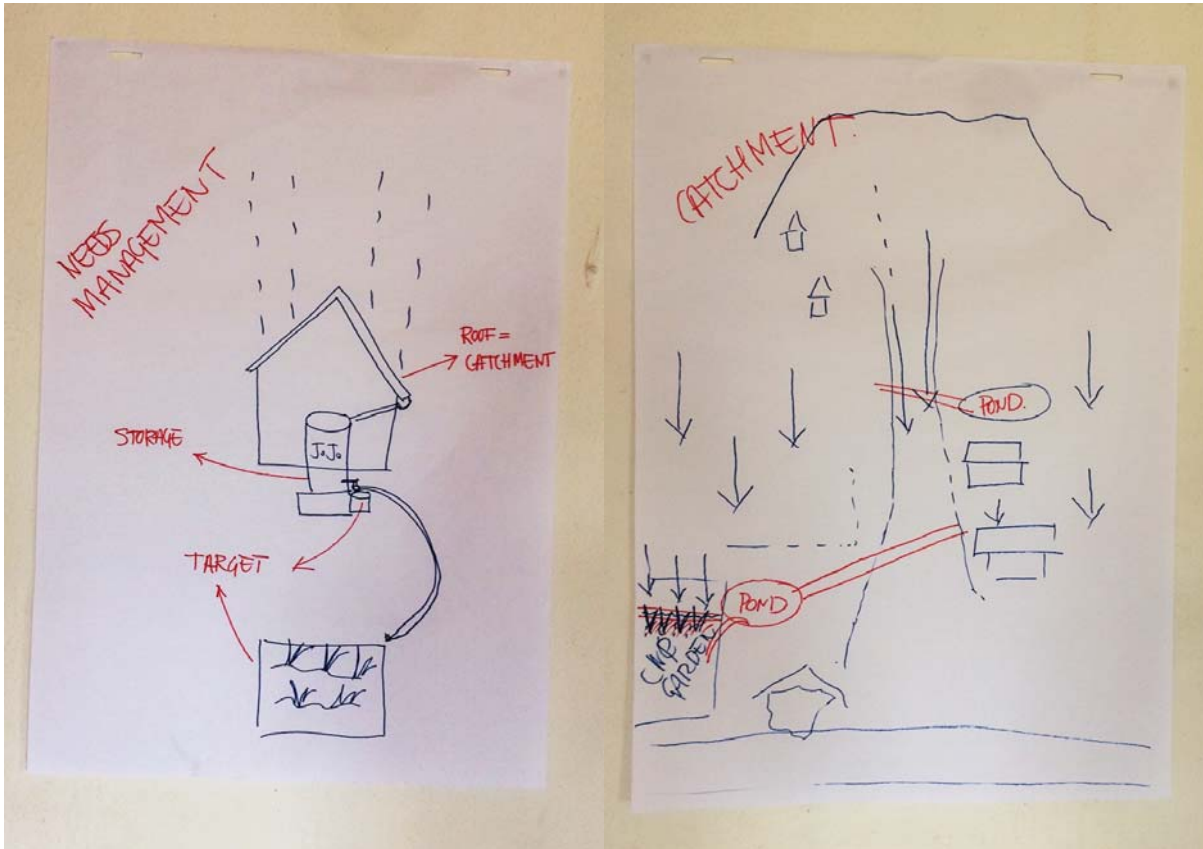 NEEDS
MANAGEMENT
ROOF =
CATCHMENT
STORAGE
JoJo
TARGET
CATCHMENT.
POND.
POND
CMP
GARDEN